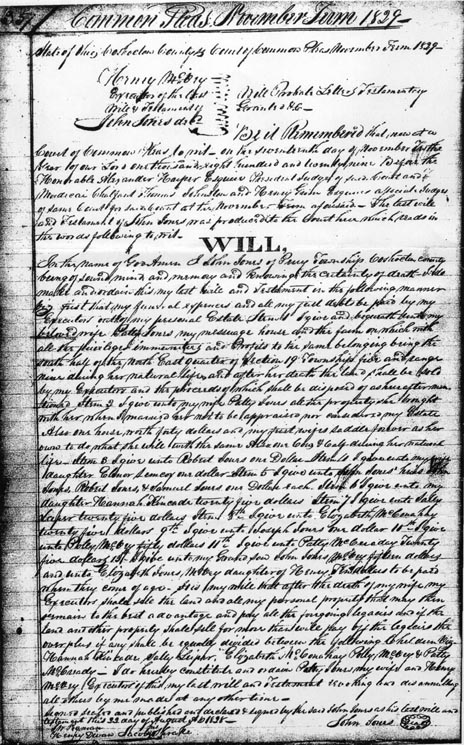 557
Common Pleas, November Term 1829
State of Ohio Coshocton County Court of Common Pleas November Term 1829
Henry McVey
Executor of the last
Will & Testament of
John Jones
Will Probate Letters Testamentary
Granted &c
Be it Remembered that, now at a
Court of Common Pleas, to wit, on the seventeenth day of November in the
Year of our Lord one thousand, eight hundred and twenty nine Before the
Honorable Alexander Harper Esquire President Judge of said Court and
Mordecai Chalfant Thomas Johnston and Henry Esquires associate Judges
of same Court for said Court at the November Term The last will
and Testament of John Jones was produced to the Court here which reads in
the words following to wit.
WILL,
In the name of God Amen I John Jones of Perry Township Coshocton County
being of sound mind and memory and knowing the certainty of death do
make and ordain this my last Will and Testament in the following manner
first that my funeral expences and all my just debt be paid by my
Executors out of my personal Estate Item 1st I give and bequeath unto my
beloved wife Patty Jones my messuage house and the farm on which with
all the priviliges immunities and Profits to the same belonging being the
South half of the North East quarter of Section 19 Township five and range
nine during her natural life and after her death the land shall be sold
by my Executors and the proceeds of which shall be disposed of as hereafter men
tioned Item 2 I give unto my wife Patty Jones all the property she brought
with her when I married her not to be appraised nor considered my Estate
Also one horse worth forty dollars and my first wifes saddle forever as her
own to do what she will with the same Also one Cow & Calf during her natural
life Item 3 I give unto Robert Jones one Dollar Item 4 I give unto my
daughter Elenor one dollar Item 5 I give unto Jones heirs
Robert Jones, & Samuel Jones one Dollar each Item 6 I give unto my
daughter Hannah Kincade twenty five dollars Item 7 I give unto Sally
Leeper twenty five dollars Item 8th I give unto Elizabeth McConahay
twenty five dollars 9th I give unto Joseph Jones one dollar 10th I give
unto Polly McVey fifty dollars 11th I give unto Patty McCready Twenty
five dollars 12 I give unto my Grand son John Jones McVey fifteen dollars
and unto Elizabeth Jones McVey daughter of Henry dollars to be paid
when they come of age It is my will that after the death of my wife my
Executors shall sell the land and all my personal property that may then
remain to the best advantage and pay all the foregoing legacies and if the
land and other property shall sell for more than will pay said legacies the
overplus if any shall be equally divided between the following Children Viz
Hannah Kincade Sally Leeper, Elizabeth McConahay Polly McVey & Patty
McCready I do hereby constitute and ordain Patty Jones my wife and Henry
McVey Executors of this my last will and Testament revoking and disannulling
all others by me made at any other time
Signed sealed and published and declared & signed by the said John Jones as his last will and
testament this 22 day of August AD 1828
Henry Jacob
John Jones Seal